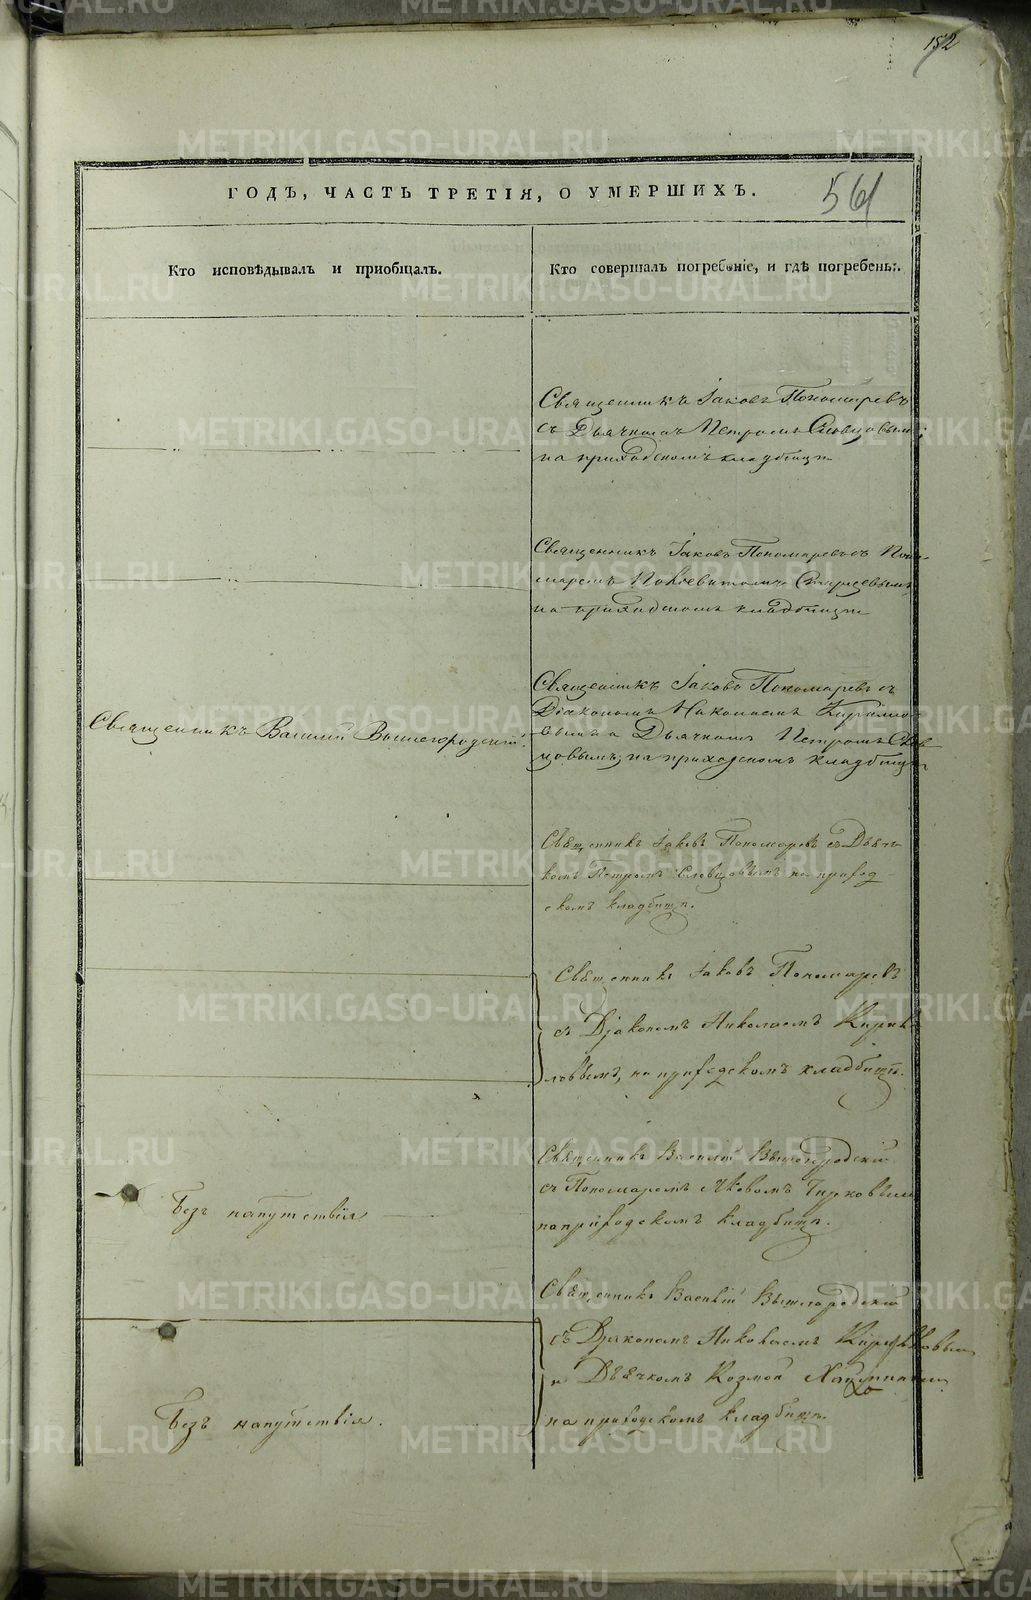 152
ГОДЪ, ЧАСТЬ ТРЕТІЯ, О УМЕРШИХЪ.
561
Кто исповѣдывалъ и пріобщалъ.
Кто совершалъ погребеніе, и гдѣ погребены.
Священникъ Іаковъ Пономаревъ
съ Дьячкомъ Петромъ Словцовымъ;
на приходскомъ кладбищѣ
Священникъ Іаковъ Пономаревъ съ Поно-
маремъ
на приходскомъ кладбищѣ
Священникъ Іаковъ Пономаревъ съ
Діакономъ Николаемъ Кирило-
вымъ и Дьячкомъ Петромъ Слов-
цовымъ; на приходскомъ кладбищѣ
Священникъ Василій Вышегородскій.
Священникъ Іаковъ Пономаревъ съ Дьяч-
комъ Петромъ Словцовымъ на приход-
скомъ кладбищѣ.
Священникъ Іаковъ Пономаревъ
съ Діакономъ Николаемъ Кирил-
ловымъ, на приходскомъ кладбищѣ.
Священникъ Василій Вышегородскій
съ Пономаремъ Яковомъ
на приходскомъ кладбищѣ.
Безъ напутствія
Священникъ Василій Вышегородскій
съ Діакономъ Николаемъ Кирилловымъ
и Дьячкомъ Козмой
на приходскомъ кладбищѣ.
Безъ напутствія.
METRIKI.GASO-URAL.RU